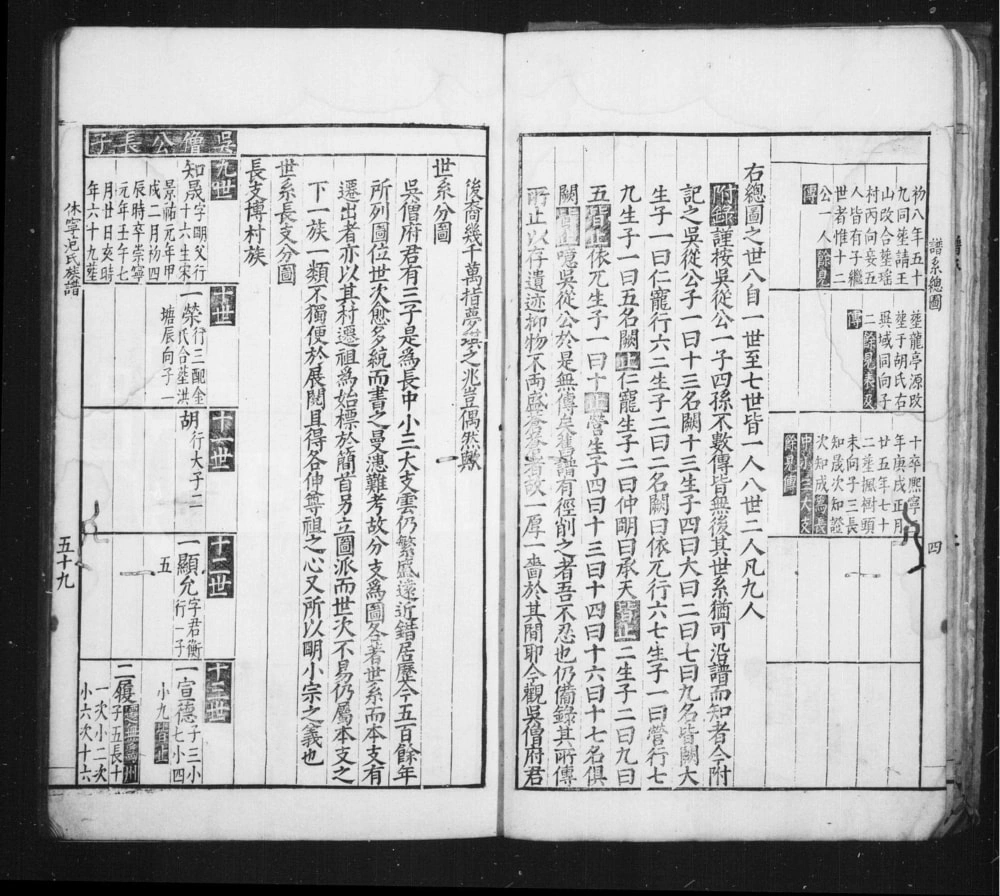 譜系總圖
四
初八年五十
九同塋請王
山改合塋瑶
村丙向衰五
人皆有子繼
世者惟十二
公一人餘見
傳
塋龍亭源改
塋于胡氏右
與域同向子
二餘見表及
傳
十卒熙寧
年庚戌正月
廿五年七十
二塋楓樹頭
未向子三長
知晟次知證
次知成為長
中小三大支
餘見傳
右總圖之世八自一世至七世皆一人八世二人凡九人
附錄謹按吳從公一子四孫不數傳皆無後其世系猶可沿譜而知者今附
記之吳從公子一曰十三名闕十三生子四曰大曰二曰七曰九名皆闕大
生子一曰仁寵行六二生子二曰二名闕曰依兀行六七生子一曰營行七
九生子一曰五名闕止仁寵生子二曰仲明曰承天皆止二生子二曰九曰
五皆止依兀生子一曰十止營生子四曰十三曰十四曰十六曰十七名俱
闕皆止噫吳從公於是無傳矣舊譜有徑削之者吾不忍也仍備錄其所傳
所止以存遺迹抑物不兩盛
故一厚一嗇於其間耶今觀吳僧府君
後裔幾千萬指夢
之兆豈偶然歟
世系分圖
吳僧府君有三子是為長中小三大支雲仍繁盛遠近錯居歷今五百餘年
所列圖位世次愈多統而書之曼漶難考故分支為圖各著世系而本支有
遷出者亦以其村遷祖為始標於簡首另立圖派而世次不易仍屬本支之
下一族一類不獨便於展閱且得各伸尊祖之心又所以明小宗之義也
世系長支分圖
長支博村族
吳僧公長子
九世
知晟字明父行
十六生宋
景祐元年甲
戌二月初四
辰時卒崇寧
元年壬午七
月廿日亥時
年六十九塋
十世
一榮行三配金
氏合塋洪
塘辰向子一
十一世
胡行大子二
十二世
一顯允字君衡
行一子
五
十三世
一宣德子三小
七小四
小九皆止
二履遷無為州
子五長十
一次小二次
小六次十六
休寧范氏族譜
五十九